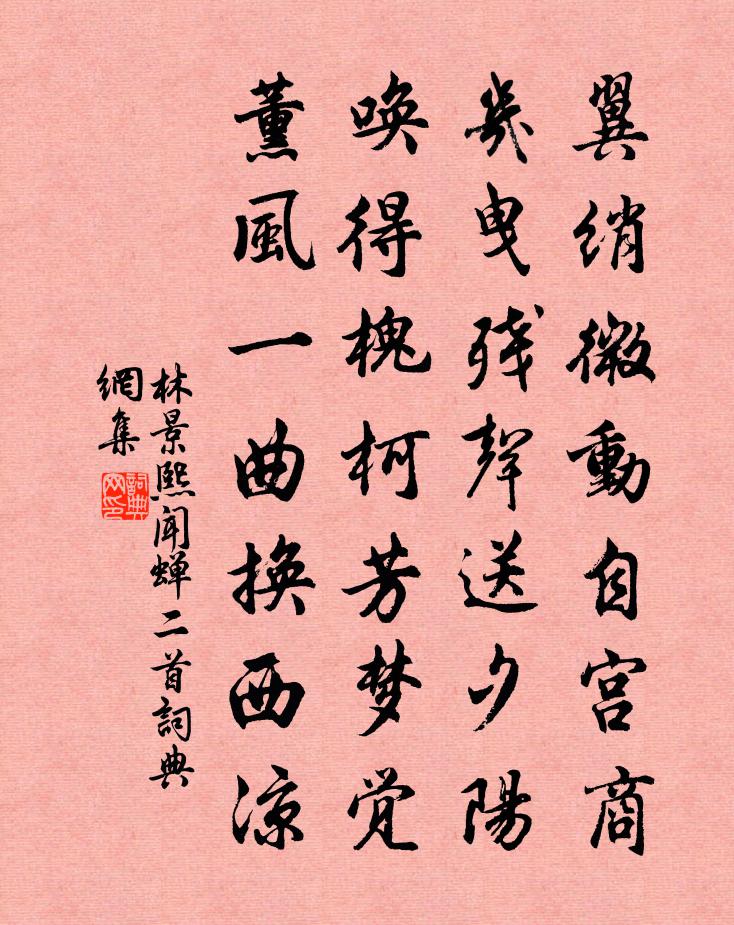 翼绡微動自宫商
幾曳残聲送夕陽
唤得槐柯芳梦覚
薰風一曲换西凉
林景熙闻蝉二首詞典
網集
詞典
网印